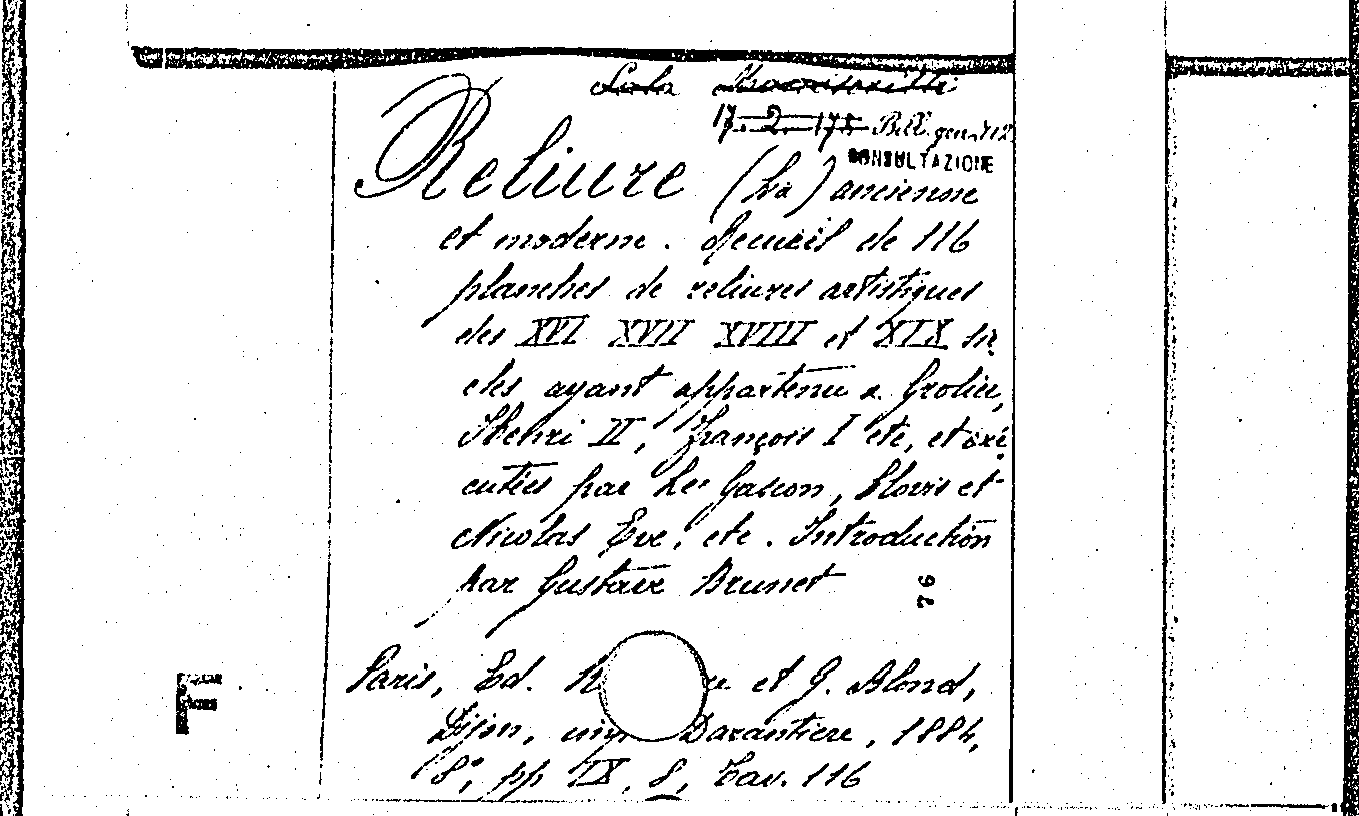 Sala Manoscritti
17. 2. 175 Bibl. gen. 712
CONSULTAZIONE
Reliure (La) ancienne
et moderne. Recueil de 116
planches de reliures artistiques
des XVI XVII XVIII et XIX siè
cles ayant appartenu a Grolier,
Henri II, François I etc, et exé
cutées par Le Gascon, Clovis et
Nicolas Eve, etc. Introduction
par Gustave Brunet
76
Paris, Ed. et G. Blond,
Dijon, imp Darantiere, 1884,
8°, pp IX, 8, Tav. 116
F